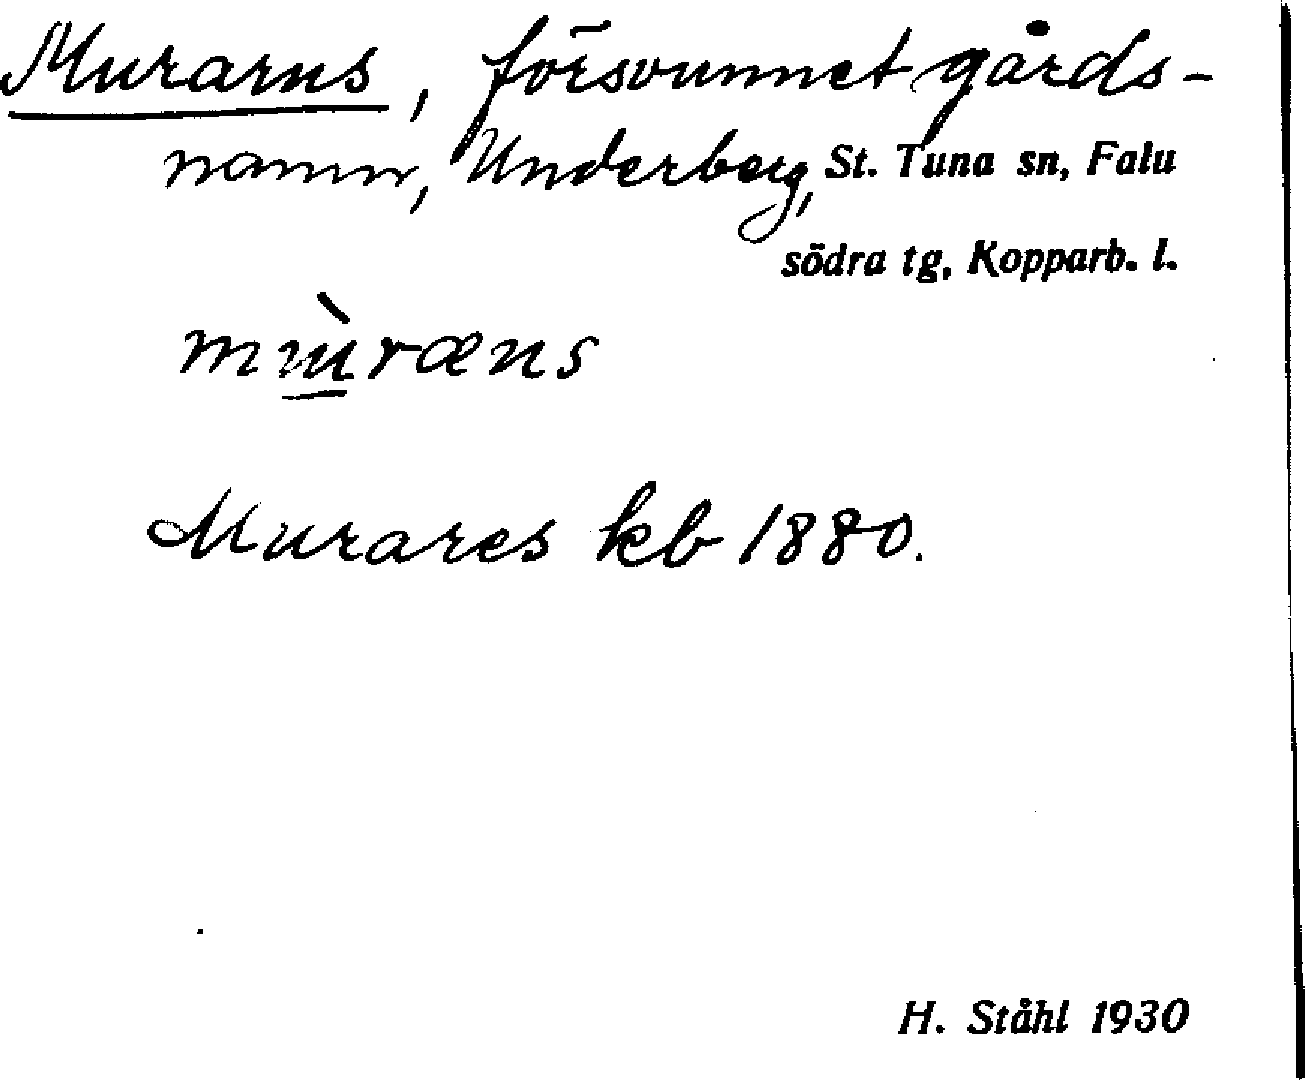 Murarns, försvunnet gårds-
namn, Underberg, St. Tuna sn, Falu
södra tg, Kopparb. l.
Murares kb 1880.
H. Ståhl 1930